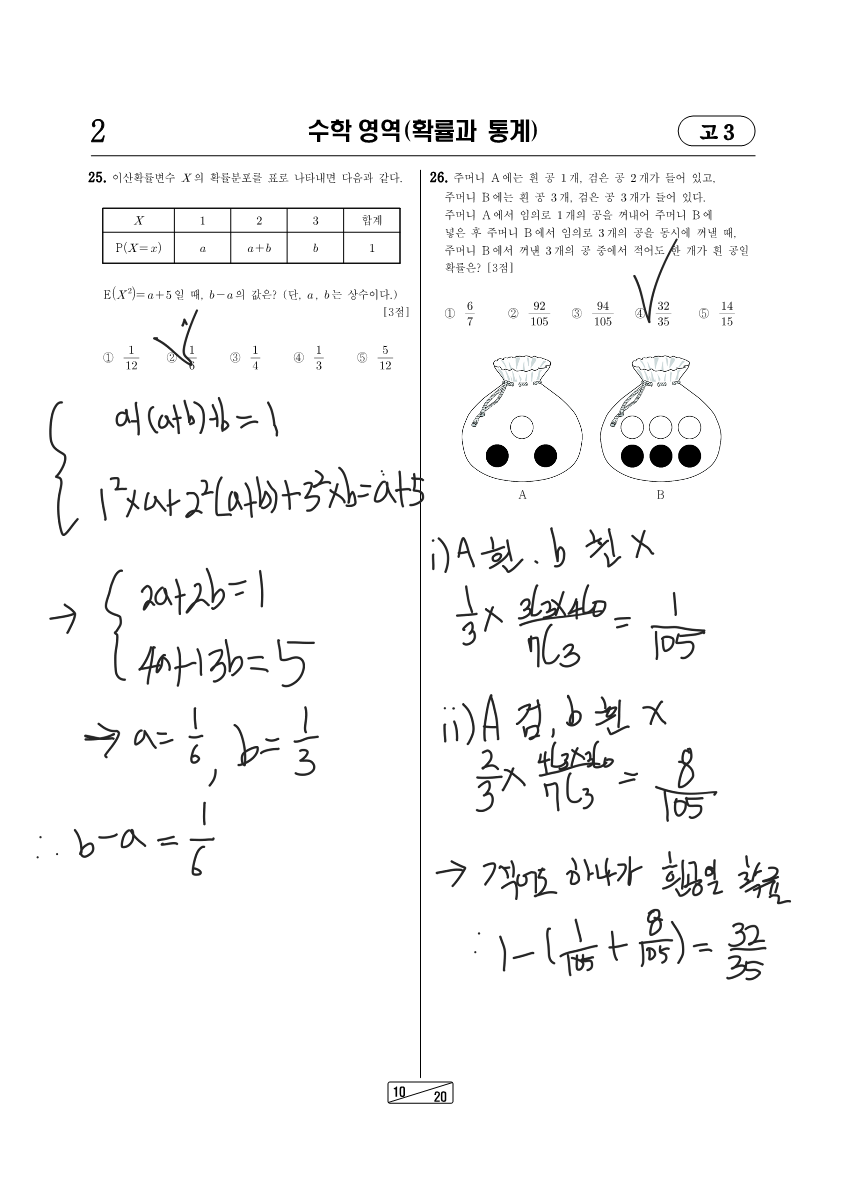 2
수학 영역(확률과 통계)
고 3
25. 이산확률변수 X의 확률분포를 표로 나타내면 다음과 같다.
X 1 2 3 합계
P(X=x) a a+b b 1
E(X²)=a+5일 때, b-a의 값은? (단, a, b는 상수이다.)
[3점]
① 1/12 ② 1/6 ③ 1/4 ④ 1/3 ⑤ 5/12
a+(a+b)+b=1
1²×a+2²(a+b)+3²×b=a+5
→ 2a+2b=1
4a+13b=5
→ a=1/6, b=1/3
∴ b-a=1/6
26. 주머니 A에는 흰 공 1개, 검은 공 2개가 들어 있고,
주머니 B에는 흰 공 3개, 검은 공 3개가 들어 있다.
주머니 A에서 임의로 1개의 공을 꺼내어 주머니 B에
넣은 후 주머니 B에서 임의로 3개의 공을 동시에 꺼낼 때,
주머니 B에서 꺼낸 3개의 공 중에서 적어도 한 개가 흰 공일
확률은? [3점]
① 6/7 ② 92/105 ③ 94/105 ④ 32/35 ⑤ 14/15
A B
i) A 흰, b 흰 X
1/3 × 3C3×4C0/7C3 = 1/105
ii) A 검, b 흰 X
2/3 × 4C3×3C0/7C3 = 8/105
→ 적어도 하나가 흰공일 확률
∴ 1-(1/105+8/105)=32/35
10 20